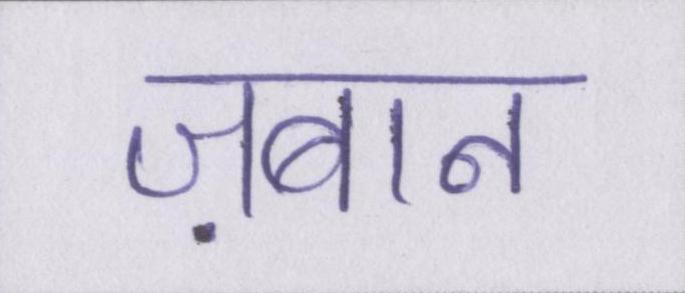 ज़बान